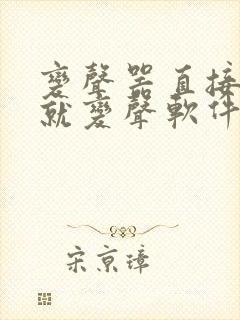 變聲器直接
就變聲軟件
宋京璋